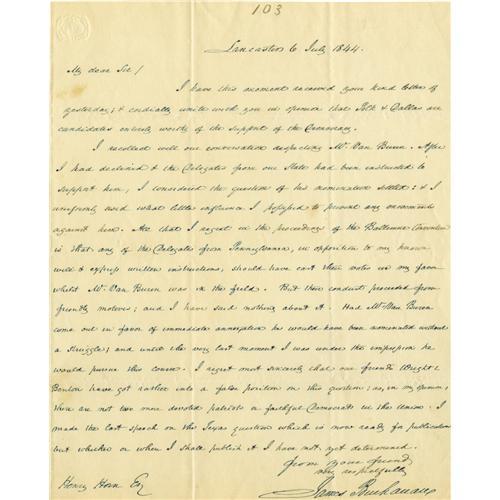 103
Lancaster 6 July 1844.
My dear Sir/
I have this moment received your kind letter of
yesterday; & cordially unite with you in opinion that Polk & Dallas are
candidates entirely worthy of the support of the Democracy.
I recollect well our conversation respecting Mr. Van Buren. After
I had declined & the Delegates from our State had been instructed to
support him, I considered the question of his nomination settled; & I
uniformly used what little influence I possessed to prevent any
against him. All that I regret in the proceedings of the Baltimore Convention
is that any of the Delegates from Pennsylvania, in opposition to my known
will & express written instructions, should have cast their votes in my favor
whilst Mr. Van Buren was in the field. But their conduct proceeded from
friendly motives; and I have said nothing about it. Had Mr. Van Buren
come out in favor of immediate annexation he would have been nominated without
a struggle; and until the very last moment I was under the impression he
would pursue this course. I regret most sincerely that our friends Wright &
Benton have got rather into a false position on this question; as, in my opinion,
there are not two more devoted patriots or faithful Democrats in the Union. I
made the last speech on the Texas question which is now ready for publication
but whether or when I shall publish it I have not yet determined.
from your friend
very respectfully
James Buchanan
Henry Horn Esq